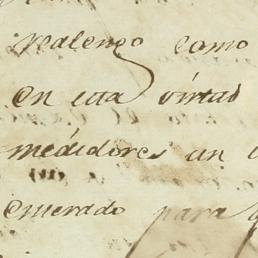 realengo como
en esta virtud
medidores un
esmerado para